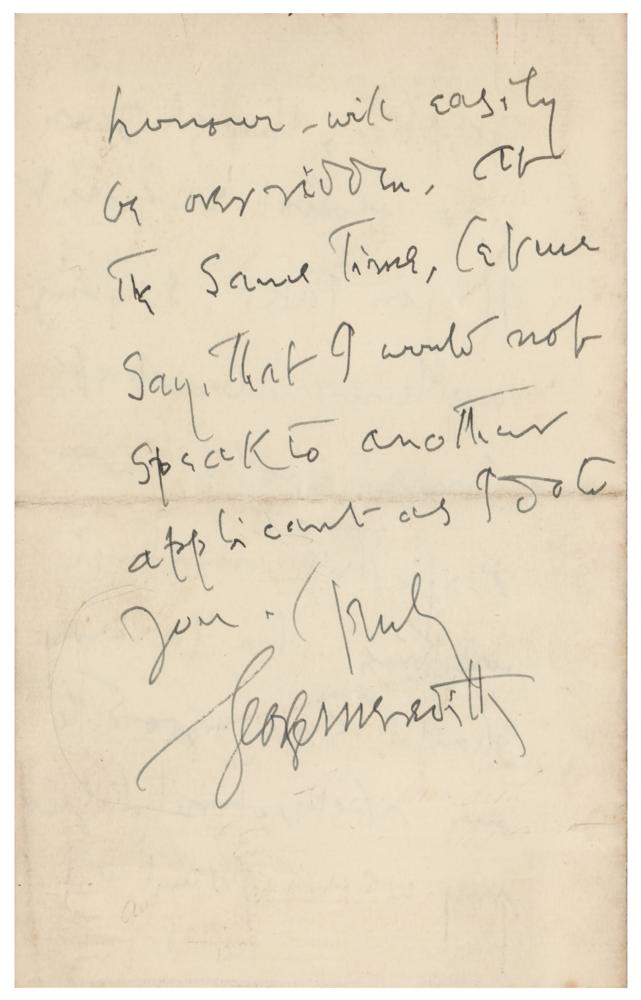 honour - will easily
be overridden. At
the same time, let me
say, that I would not
speak to another
applicant as I do to
you. truly
George Meredith